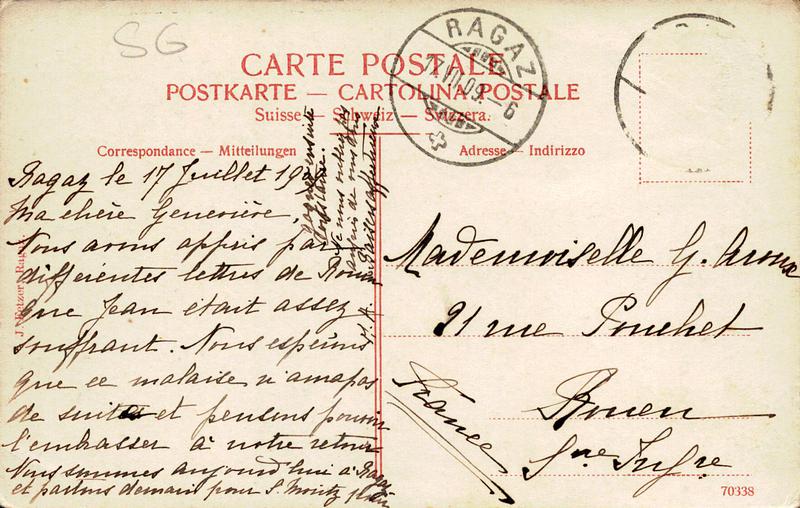 SG
CARTE POSTALE
POSTKARTE — CARTOLINA POSTALE
Suisse — Schweiz — Svizzera.
RAGAZ
17.VII.09.–6
Correspondance — Mitteilungen
Adresse — Indirizzo
Ragaz le 17 Juillet
Ma chère Geneviève,
Nous avons appris par
différentes lettres de Rouen
que Jean était assez
souffrant. Nous espérons
que ce malaise n'aura pas
de suites et pensons pouvoir
l'embrasser à notre retour
Nous sommes aujourd'hui à Ragaz
et partons demain pour St Moritz
Mademoiselle G.
21 rue Pouchet
Rouen
Sne Infre
France
J. Fetzer, Ragaz.
70338